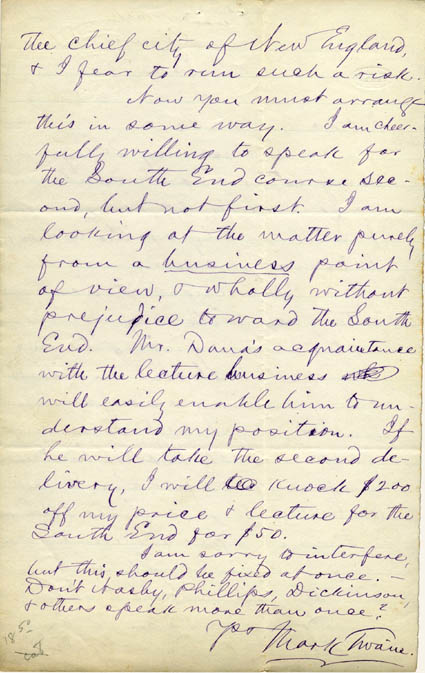 the chief city of New England,
& I fear to run such a risk.
Now you must arrange
this in some way. I am cheer-
fully willing to speak for
the South End course sec-
ond, but not first. I am
looking at the matter purely
from a business point
of view, & wholly without
prejudice toward the South
End. Mr. Dana's acquaintance
with the lecture business
will easily enable him to un-
derstand my position. If
he will take the second de-
livery, I will knock $200
off my price & lecture for the
South End for $50.
I am sorry to interfere,
but this should be fixed at once. —
Don't Nasby, Phillips, Dickinson,
& others speak more than once?
Yrs
Mark Twain.